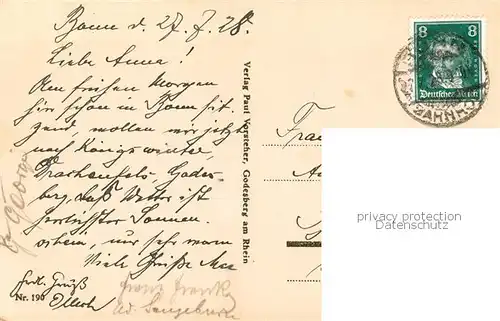 Bonn d. 27.7.28.
Liebe Anna!
Am frühen Morgen
hier schon in Bonn sit
zend, wollen wir jetzt
nach Königswinter,
Drachenfels, Godes-
berg, das Wetter ist
herrlichster Sonnen-
schein, nur sehr warm
Viele Grüße
Franz
Nr. 190
Verlag Paul Vorsteher, Godesberg am Rhein
8 8
Deutsches Reich
Frau
privacy protection
Datenschutz